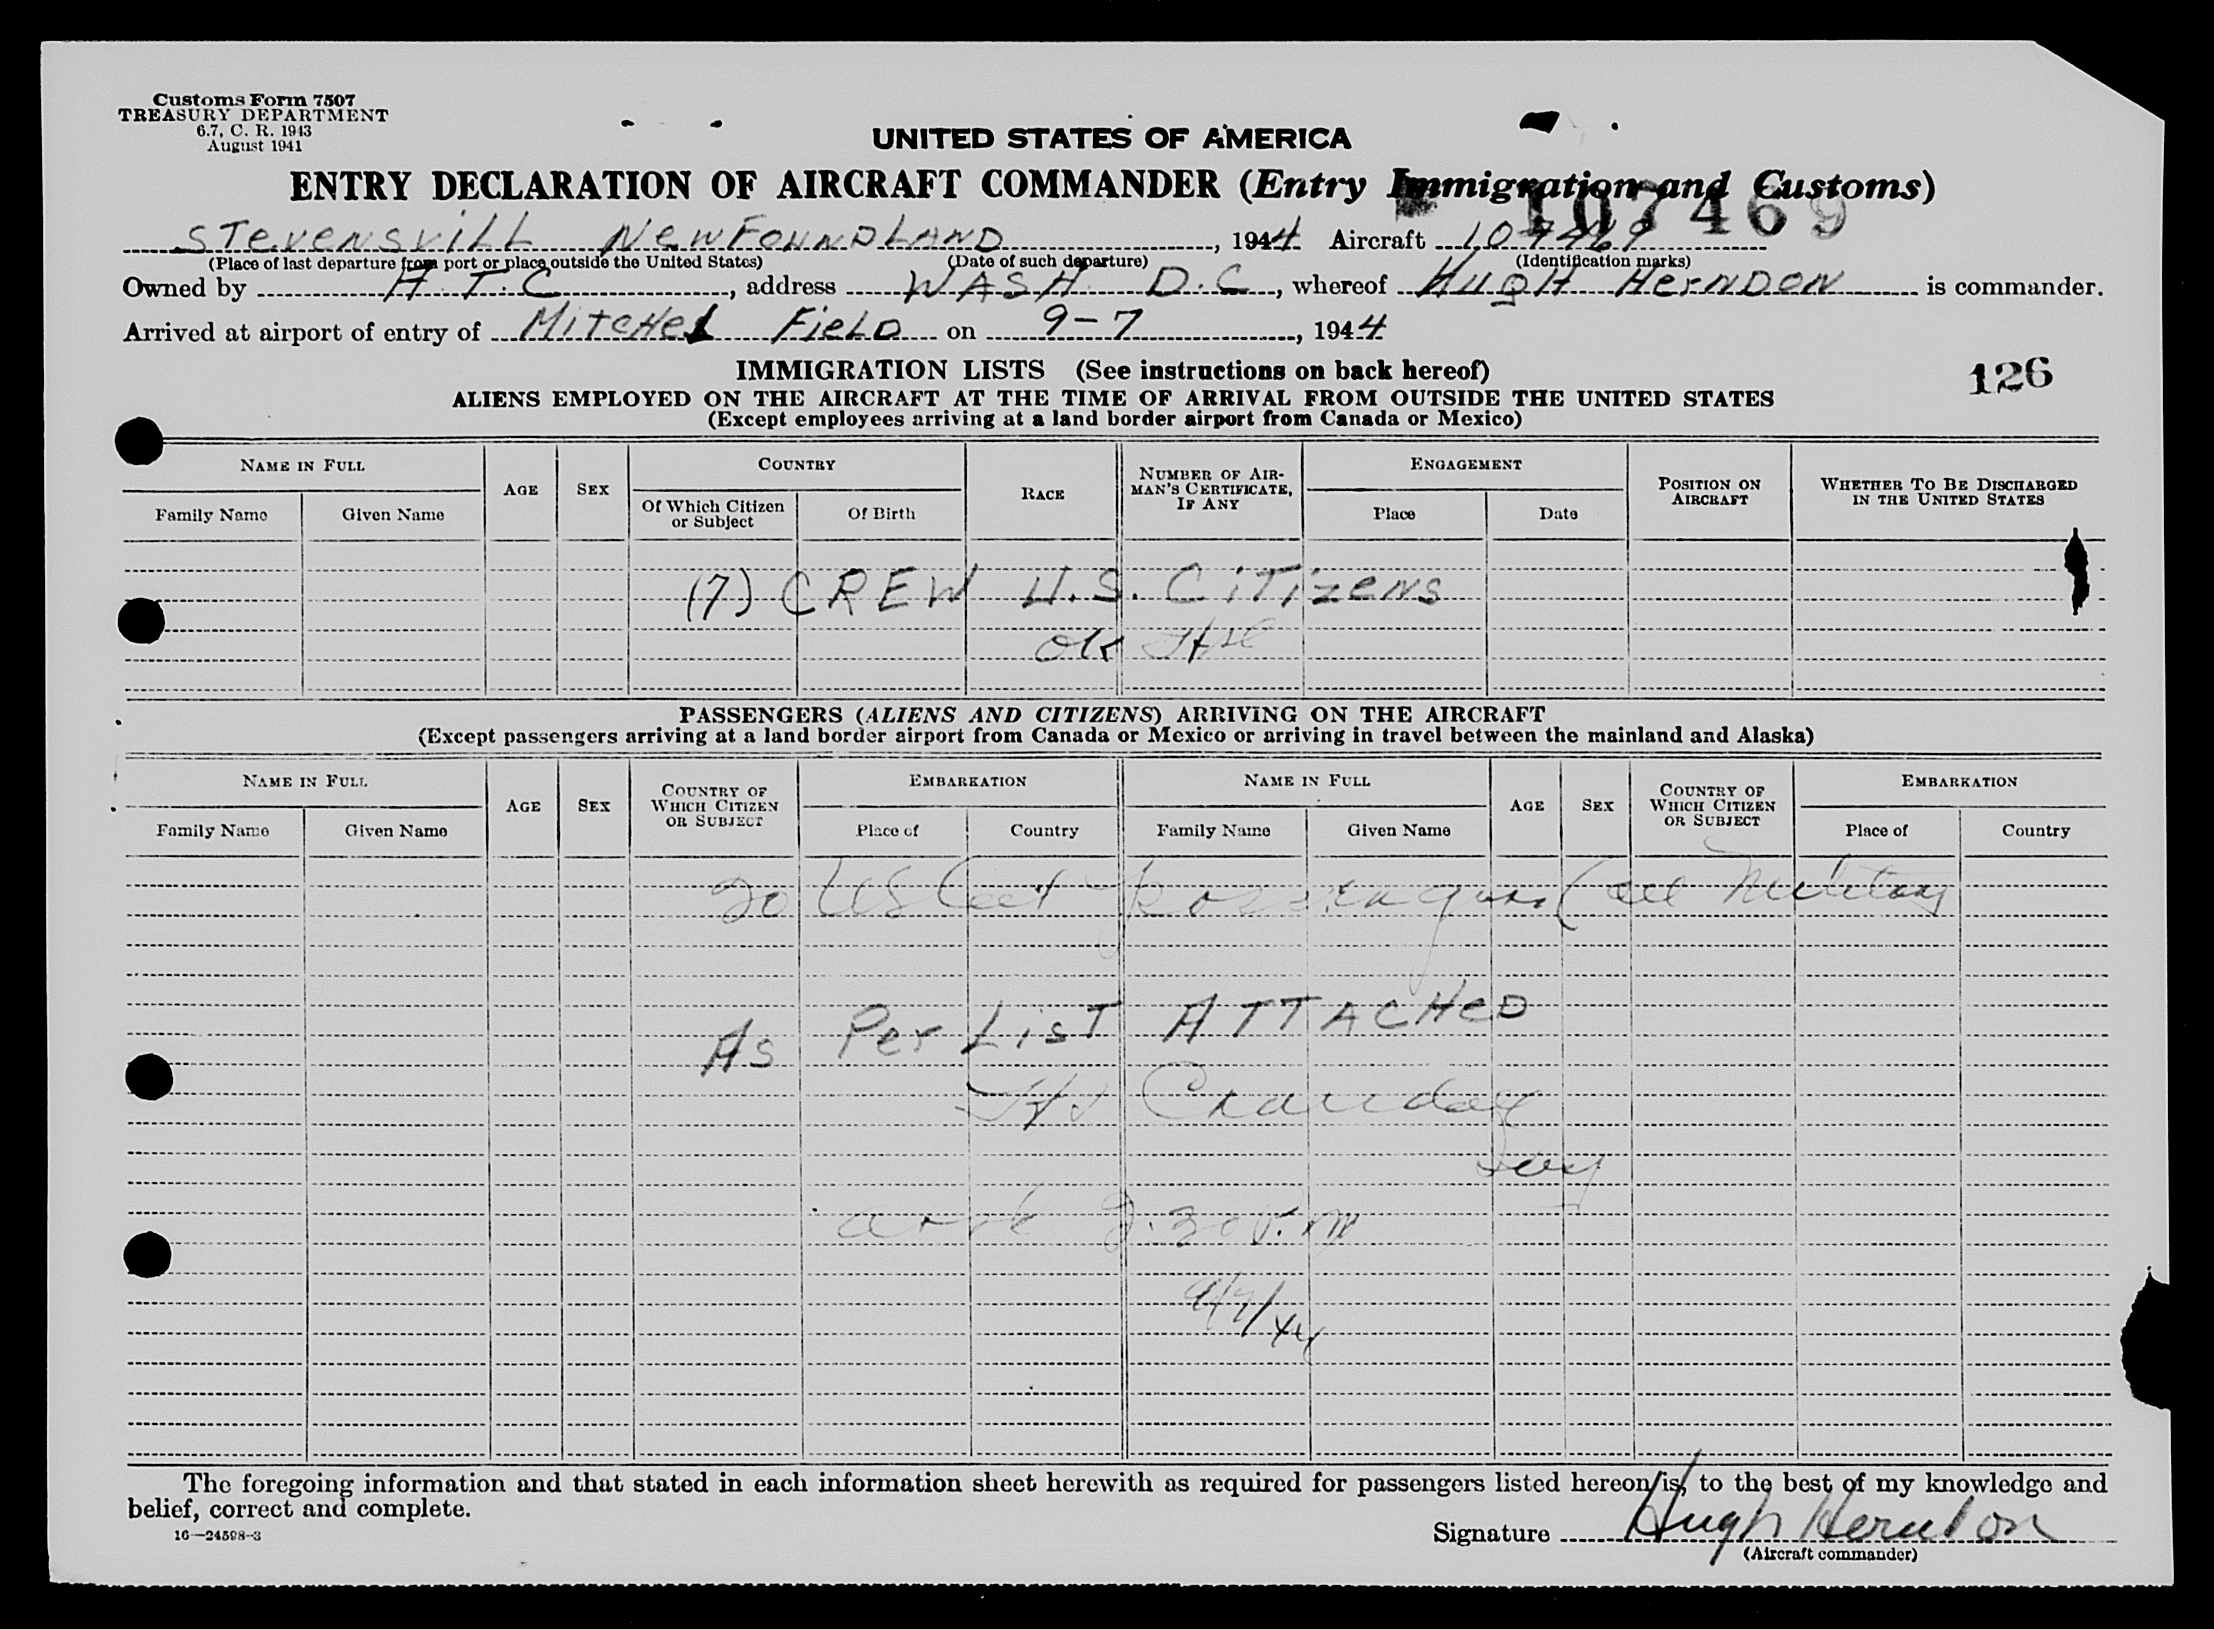 Customs Form 7507
TREASURY DEPARTMENT
6.7, C. R. 1943
August 1941
UNITED STATES OF AMERICA
ENTRY DECLARATION OF AIRCRAFT COMMANDER (Entry Immigration and Customs)
107469
STevensvill NewFoundLAND, 1944 Aircraft 107469
(Place of last departure from port or place outside the United States) (Date of such departure) (Identification marks)
Owned by A.T.C, address WASH. D.C, whereof Hugh Herndon is commander.
Arrived at airport of entry of Mitchel Field on 9-7, 1944
IMMIGRATION LISTS (See instructions on back hereof)
126
ALIENS EMPLOYED ON THE AIRCRAFT AT THE TIME OF ARRIVAL FROM OUTSIDE THE UNITED STATES
(Except employees arriving at a land border airport from Canada or Mexico)
NAME IN FULL AGE SEX COUNTRY RACE NUMBER OF AIRMAN'S CERTIFICATE, IF ANY ENGAGEMENT POSITION ON AIRCRAFT WHETHER TO BE DISCHARGED IN THE UNITED STATES
Family Name Given Name Of Which Citizen or Subject Of Birth Place Date
(7) CREW U.S. CiTizens
OK
PASSENGERS (ALIENS AND CITIZENS) ARRIVING ON THE AIRCRAFT
(Except passengers arriving at a land border airport from Canada or Mexico or arriving in travel between the mainland and Alaska)
NAME IN FULL AGE SEX COUNTRY OF WHICH CITIZEN OR SUBJECT EMBARKATION NAME IN FULL AGE SEX COUNTRY OF WHICH CITIZEN OR SUBJECT EMBARKATION
Family Name Given Name Place of Country Family Name Given Name Place of Country
20 US Cit passengers (all Military
As Per List ATTACHED
9/7/44
The foregoing information and that stated in each information sheet herewith as required for passengers listed hereon is, to the best of my knowledge and
belief, correct and complete.
16—24598-3
Signature Hugh Herndon
(Aircraft commander)